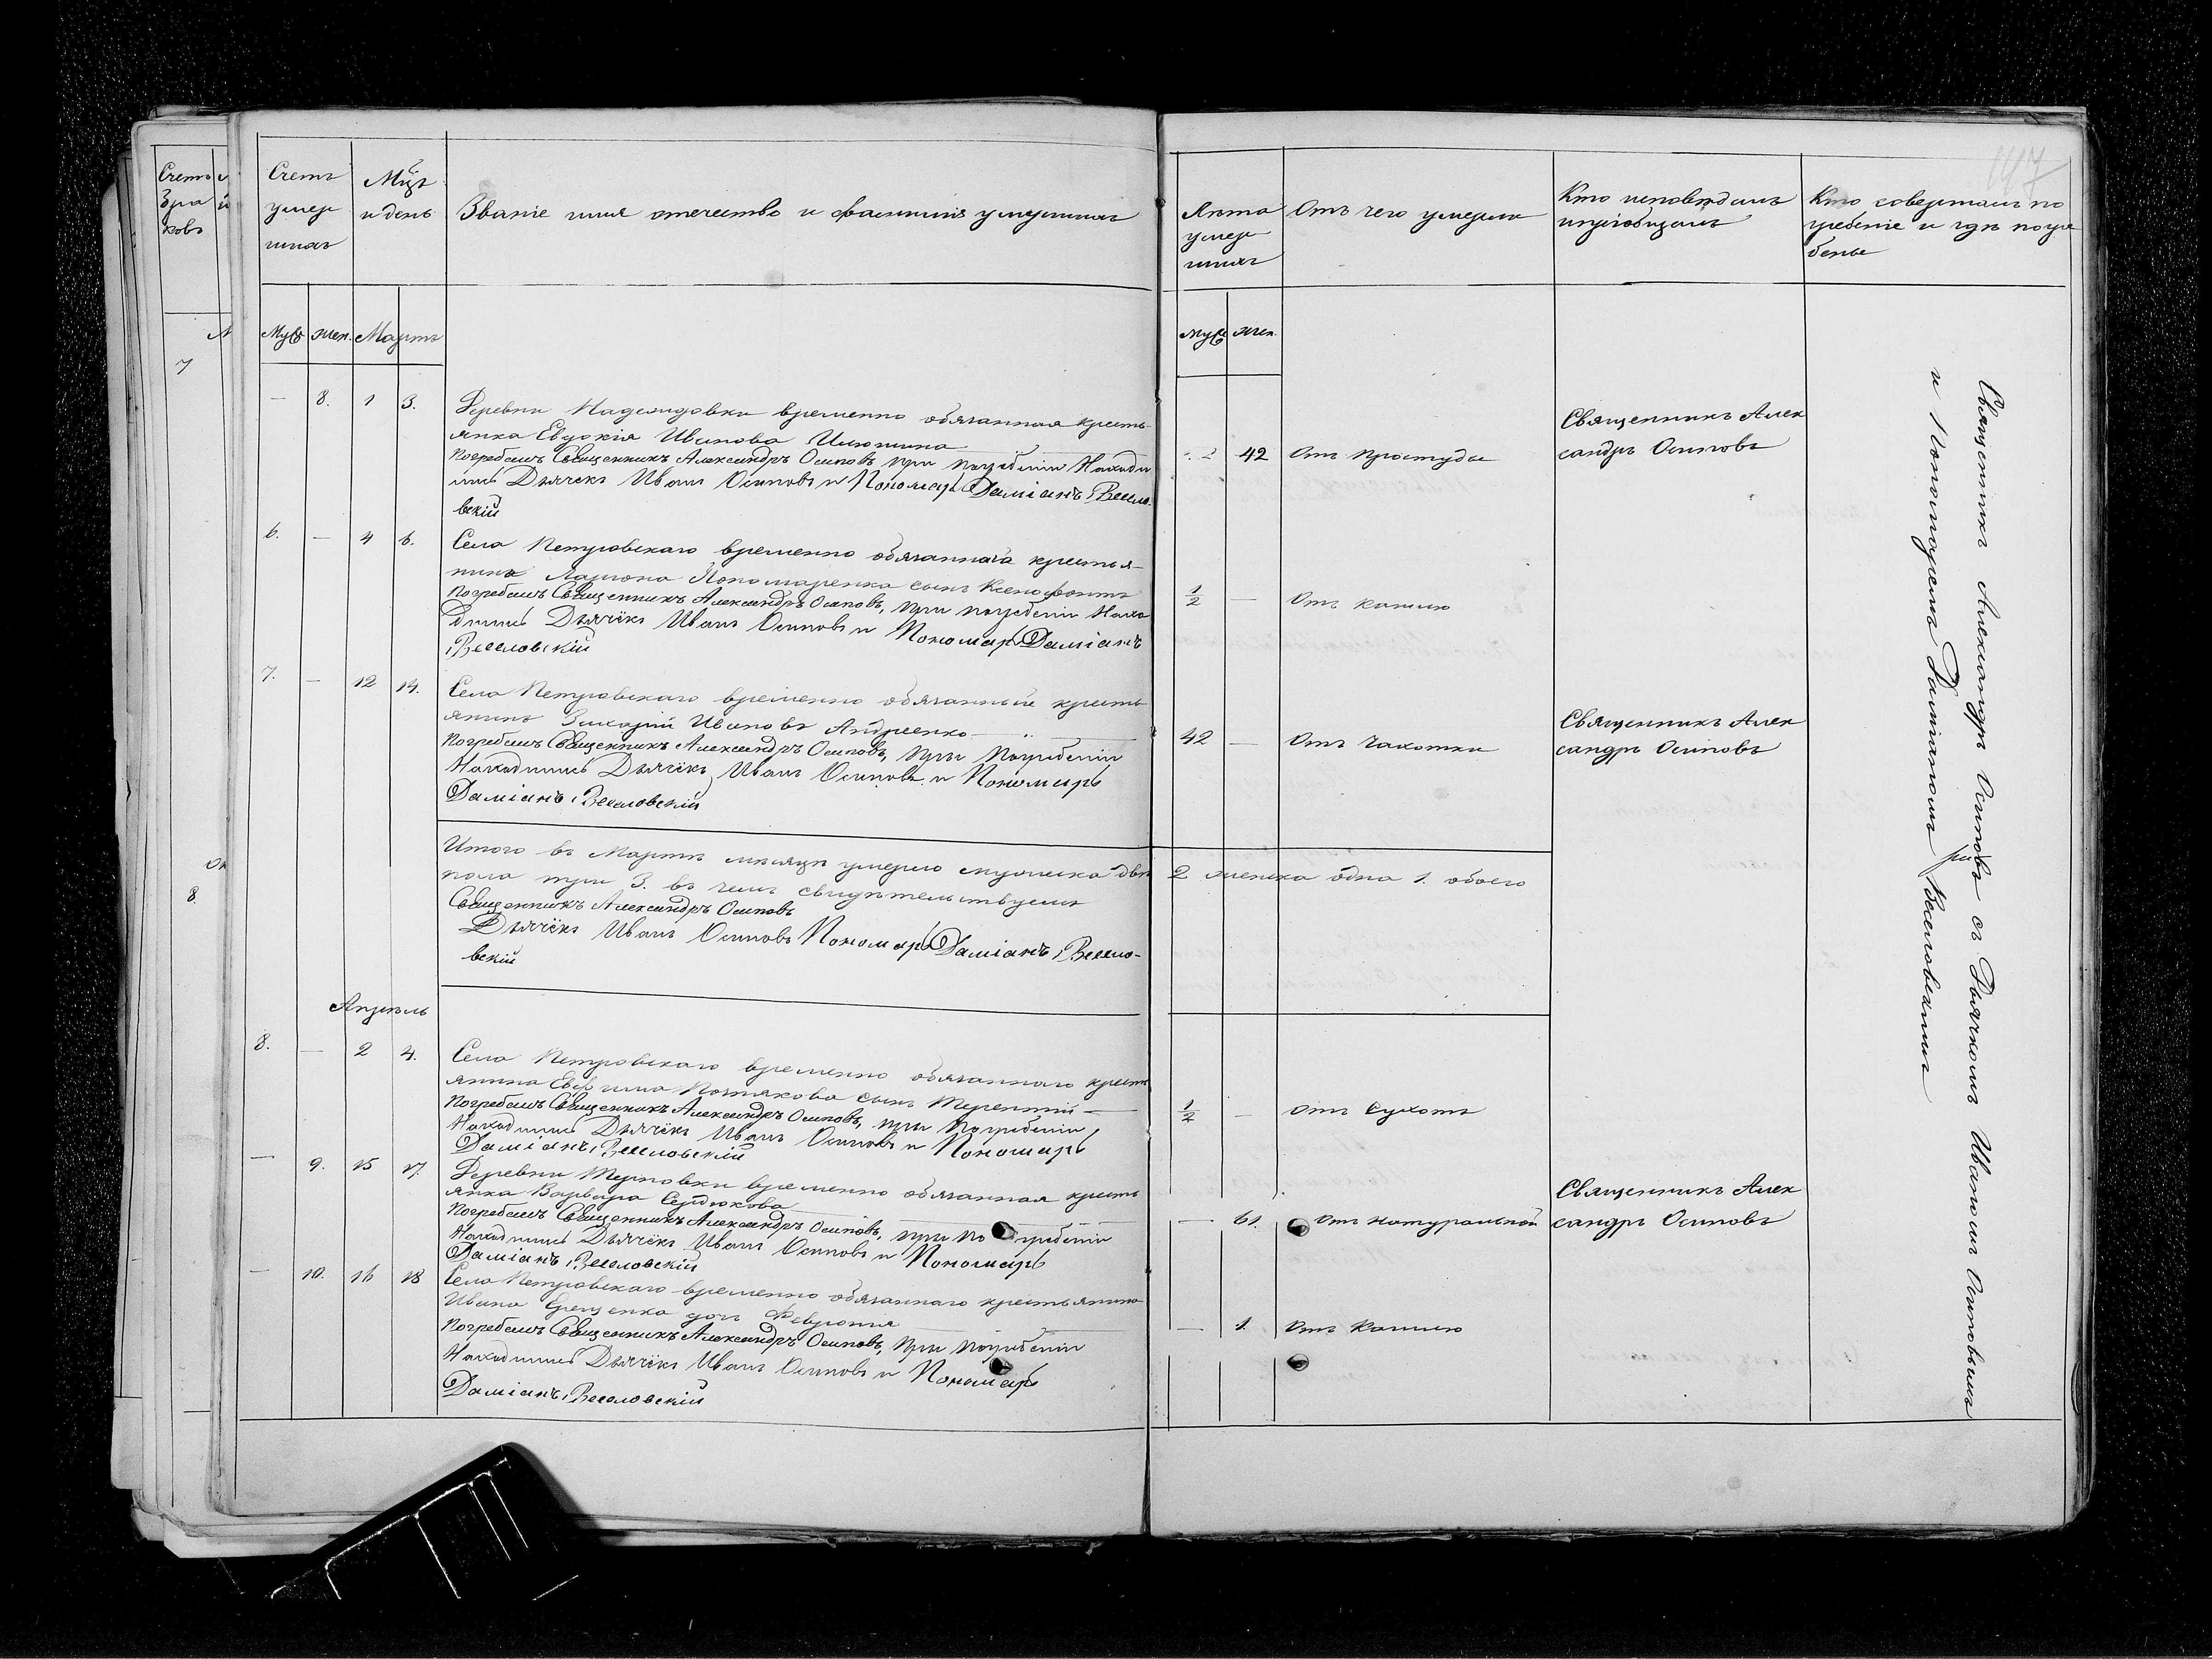 Счетъ
умер
шихъ
Мцъ
и день
Званіе имя отечество и фамилія умершихъ
Муж
жен.
Мартъ
— 8. 1 3.
Деревни Надеждовки временно обязанная кресть-
янка Евдокія Иванова Илюшина
Погребалъ Священникъ Александръ Осиповъ при погребеніи Находи
лись Дьячекъ Иванъ Осиповъ и Пономарь Даміанъ Весело-
вскій
6. — 4 6.
Села Петровскаго временно обязаннаго крестья-
нина Лариона Пономаренка сынъ Ксенофонтъ
Погребалъ Священникъ Александръ Осиповъ, при погребеніи Нахо
дились Дьячёкъ Иванъ Осиповъ и Пономарь Даміанъ
Веселовскій
7. — 12 14.
Села Петровскаго временно обязанный кресть
янинъ Захарій Ивановъ Андреенко
Погребалъ Священникъ Александръ Осиповъ, при Погребеніи
Находились Дьячёкъ Иванъ Осиповъ и Пономарь
Даміанъ Веселовскій
Итого въ Мартѣ мѣсяцѣ умерло мужеска два 2 женска одна 1. обоего
пола три 3. въ чемъ свидѣтельствуемъ
Священникъ Александръ Осиповъ
Дьячёкъ Иванъ Осиповъ Пономарь Даміанъ Весело-
вскій
Апрель
8. — 2 4.
Села Петровскаго временно обязаннаго кресть
янина Евфима Полякова сынъ Терентій
Погребалъ Священникъ Александръ Осиповъ, при Погребеніи
Находились Дьячёкъ Иванъ Осиповъ и Пономарь
Даміанъ Веселовскій
— 9. 15 17.
Деревни Терновки временно обязанная кресть
янка Варвара Сердюкова
Погребалъ Священникъ Александръ Осиповъ, при погребеніи
Находились Дьячёкъ Иванъ Осиповъ и Пономарь
Даміанъ Веселовскій
— 10. 16 18
Села Петровскаго временно обязаннаго крестьянина
Ивана Грещенка дочь Февронія
Погребалъ Священникъ Александръ Осиповъ, при погребеніи
Находились Дьячёкъ Иванъ Осиповъ и Пономарь
Даміанъ Веселовскій
Лѣта
умер
шихъ
Отъ чего умерли
Кто исповѣдалъ
и пріобщалъ
Кто совершалъ по
гребеніе и гдѣ погре
бены
147
Муж
жен.
42 Отъ простуды
Священникъ Алек
сандръ Осиповъ
1/2 — Отъ кашлю
42 — Отъ Чахотки
Священникъ Алек
сандръ Осиповъ
1/2 — Отъ Сухотъ
— 61. Отъ натуральной
Священникъ Алек
сандръ Осиповъ
— 1. Отъ Кашлю
Священникъ Александръ Осиповъ съ Дьячкомъ Иваномъ Осиповымъ
и Пономаремъ Даміаномъ Веселовскимъ
Счетъ
бра
ковъ
7
8.